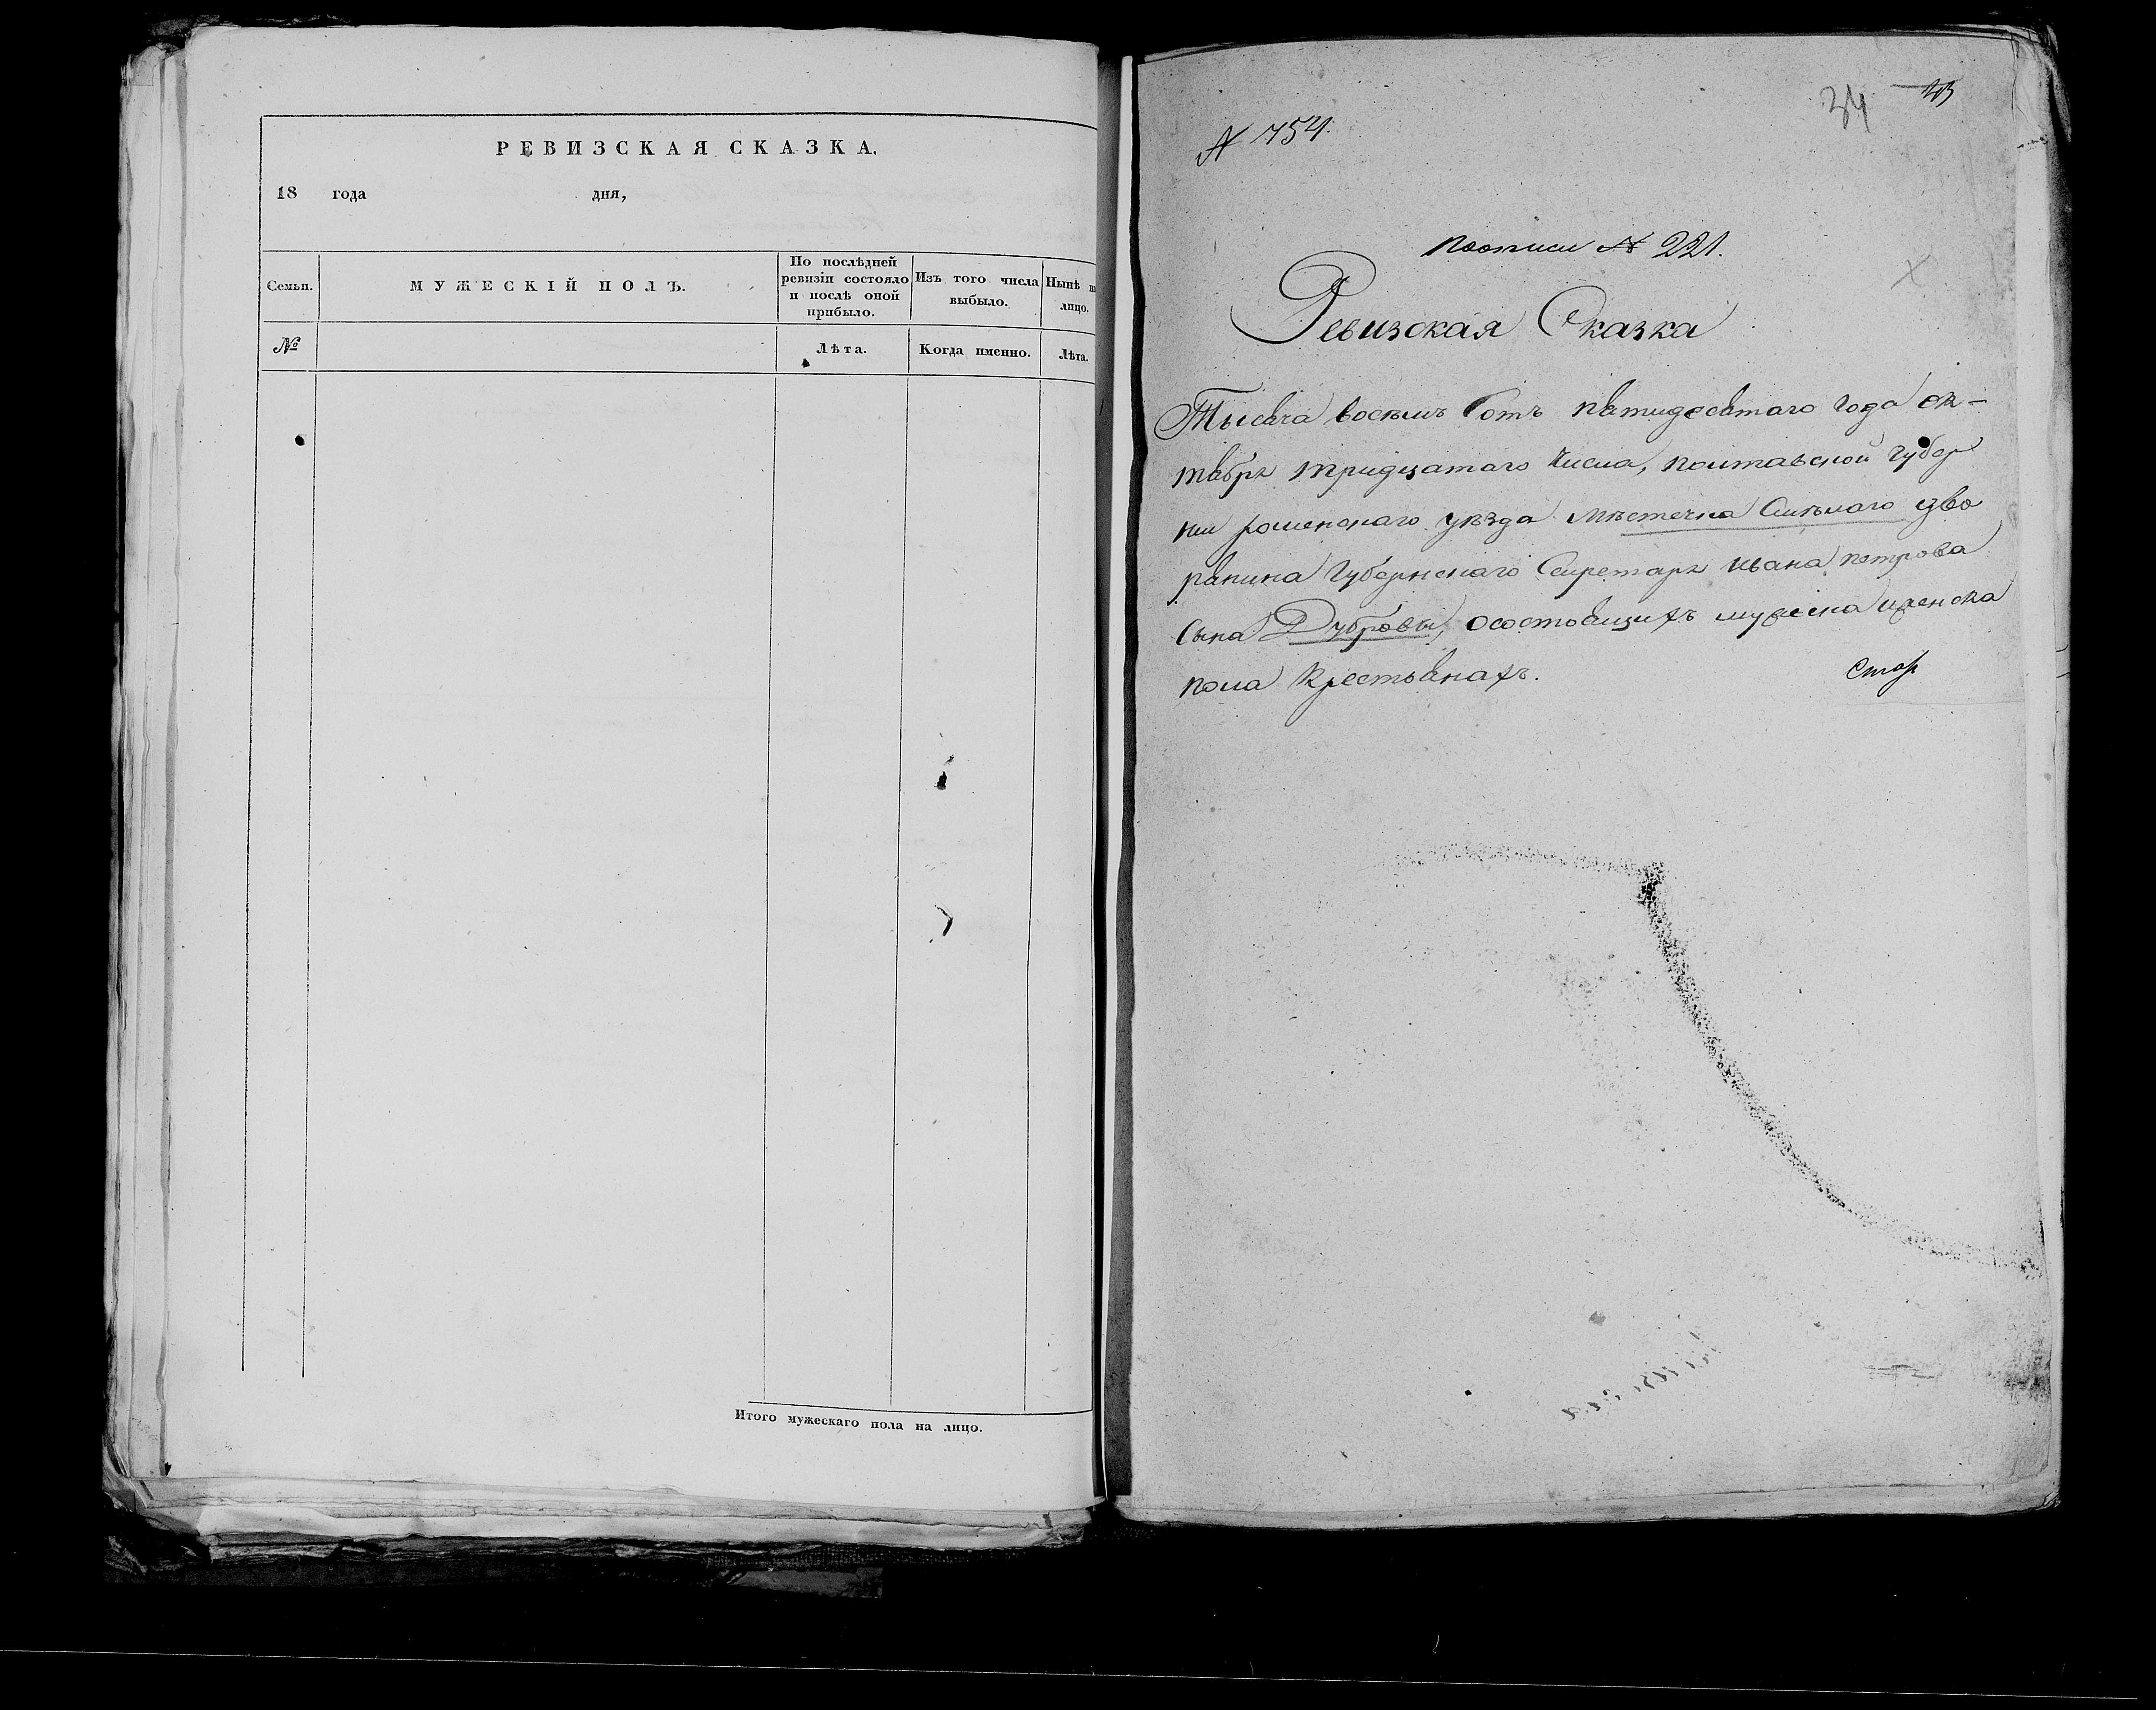 РЕВИЗСКАЯ СКАЗКА.
18 года дня,
Семьи.
МУЖЕСКІЙ ПОЛЪ.
По послѣдней
ревизіи состояло
и послѣ оной
прибыло.
Изъ того числа
выбыло.
Нынѣ н
лицо.
№
Лѣта.
Когда именно.
Лѣта.
Итого мужескаго пола на лицо.
34
N 754.
поописи N 221.
Ревизская Сказка
Тысяча восемь сотъ пятидесятаго года ок-
тября тридцатаго числа, полтавской губер
ніи роменскаго уѣзда мѣстечка Смѣлаго дво
рянина Губернскаго Секретаря Ивана петрова
Сына Дубровы, осостоящихъ мужеска иженска
пола крестьянахъ.